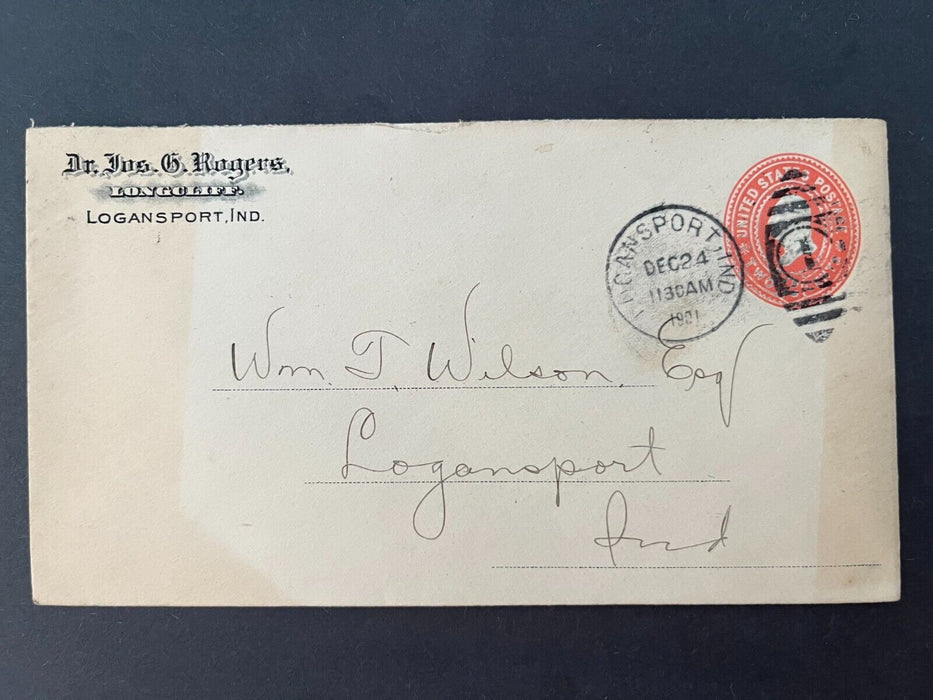 Dr. Jos. G. Rogers,
LONGCLIFF.
LOGANSPORT, IND.
LOGANSPORT, IND.
DEC 24
1130AM
1901
UNITED STATES POSTAGE
TWO
Wm. T. Wilson, Esq
Logansport
Ind